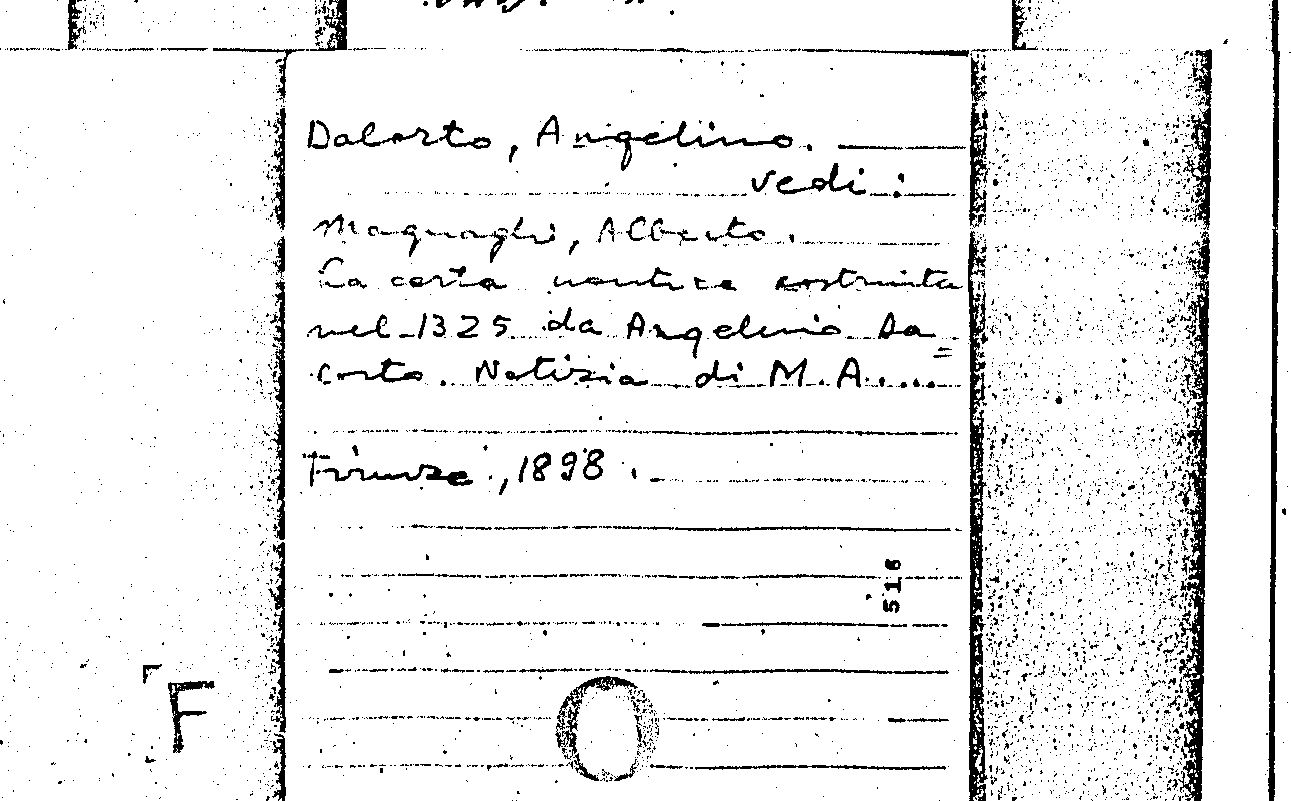 Dalorto, Angelino.
vedi:
Magnaghi, Alberto.
La carta nautica costruita
nel 1325 da Angelino Da
lorto. Notizia di M. A. ...
Firenze, 1898.
516
F